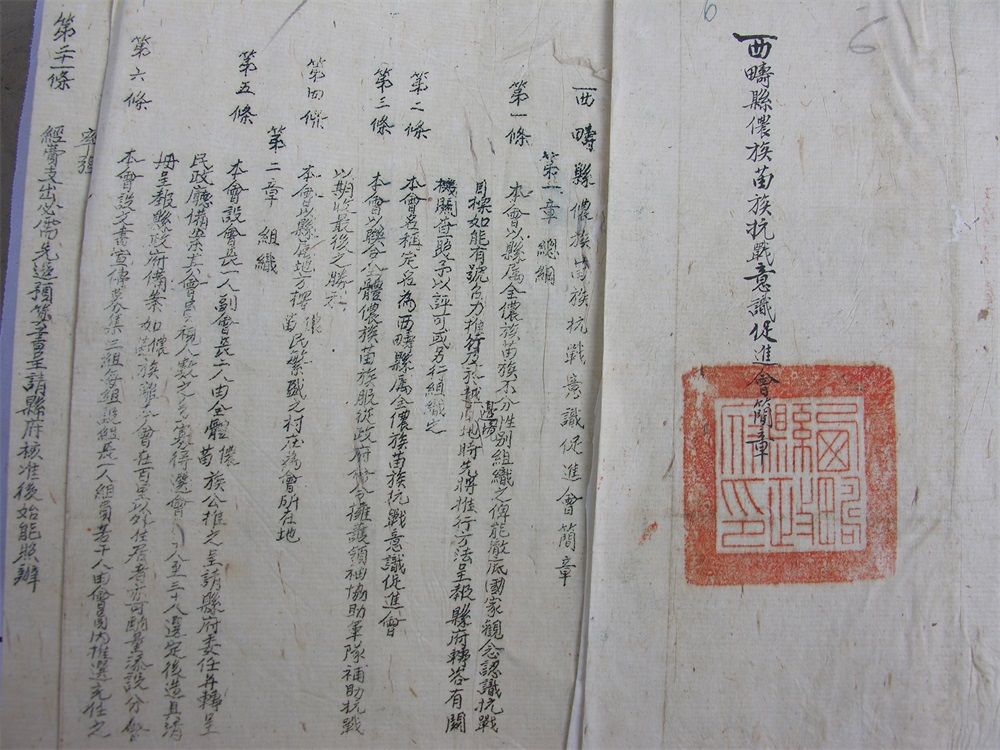 西疇縣儂族苗族抗戰意識促進會簡章
西疇縣政府印
西疇縣儂族苗族抗戰意識促進會簡章
第一章 總綱
第一條 本會以縣属全儂族苗族不分性别組織之俾能徹底國家觀念認識抗戰
目標如能有號召力推行及於越南邊境地時先將推行方法呈報縣府轉咨有關
機關查照予以許可或另行組織之
第二條 本會名稱定名為西疇縣属全儂族苗族抗戰意識促進會
第三條 本會以聯合全體儂族苗族服從政府命令擁護領袖協助軍隊補助抗戰
以期收最後之勝利
第四條 本會以縣属地方擇儂苗民繁殖之村庄為會所在地
第二章 組織
第五條 本會設會長一人副會長二人由全體儂苗族公推之呈請縣府委任再轉呈
民政廳備案其會員視人數之多寡得選會員 人至三十人選定後造具清
册呈報縣政府備案如儂苗族離本會在百里以外住居者亦可酌量添設分會
第六條 本會設文書宣傳募集三組每組設組長一人組員若干人由會員内推選充任之
第二十一條 經費支出必需先造預算書呈請縣府核准後始能照辦